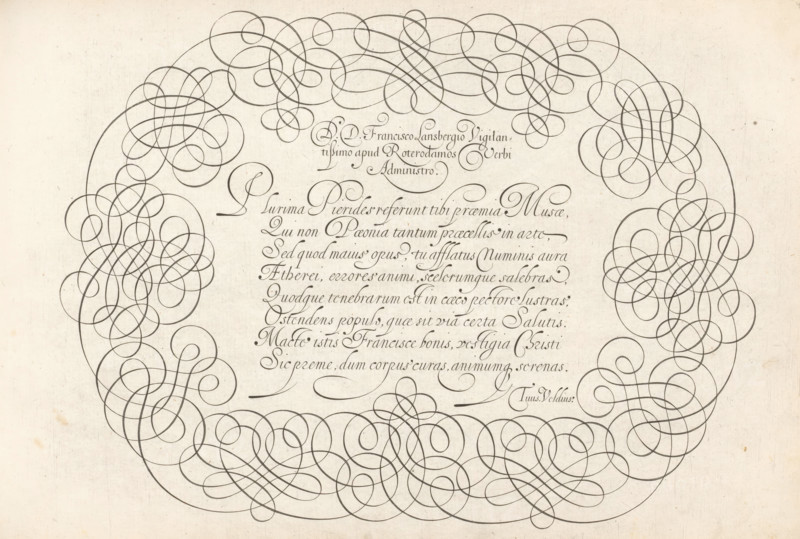 D. D. Francisco Lansbergio Vigilan-
tissimo apud Roterodamos Verbi
Administro.
Plurima Pierides referunt tibi præmia Musæ,
Qui non Pæonia tantum præcellis in arte,
Sed quod maius opus, tu afflatus Numinis aura
Ætherei, errores animi, scelerumque salebras,
Quodque tenebrarum est in cæco pectore lustras,
Ostendens populo, quæ sit via certa Salutis.
Macte istis Francisce bonis, vestigia Christi
Sic preme, dum corpus curas, animumq, serenas.
Tuus Veldius.